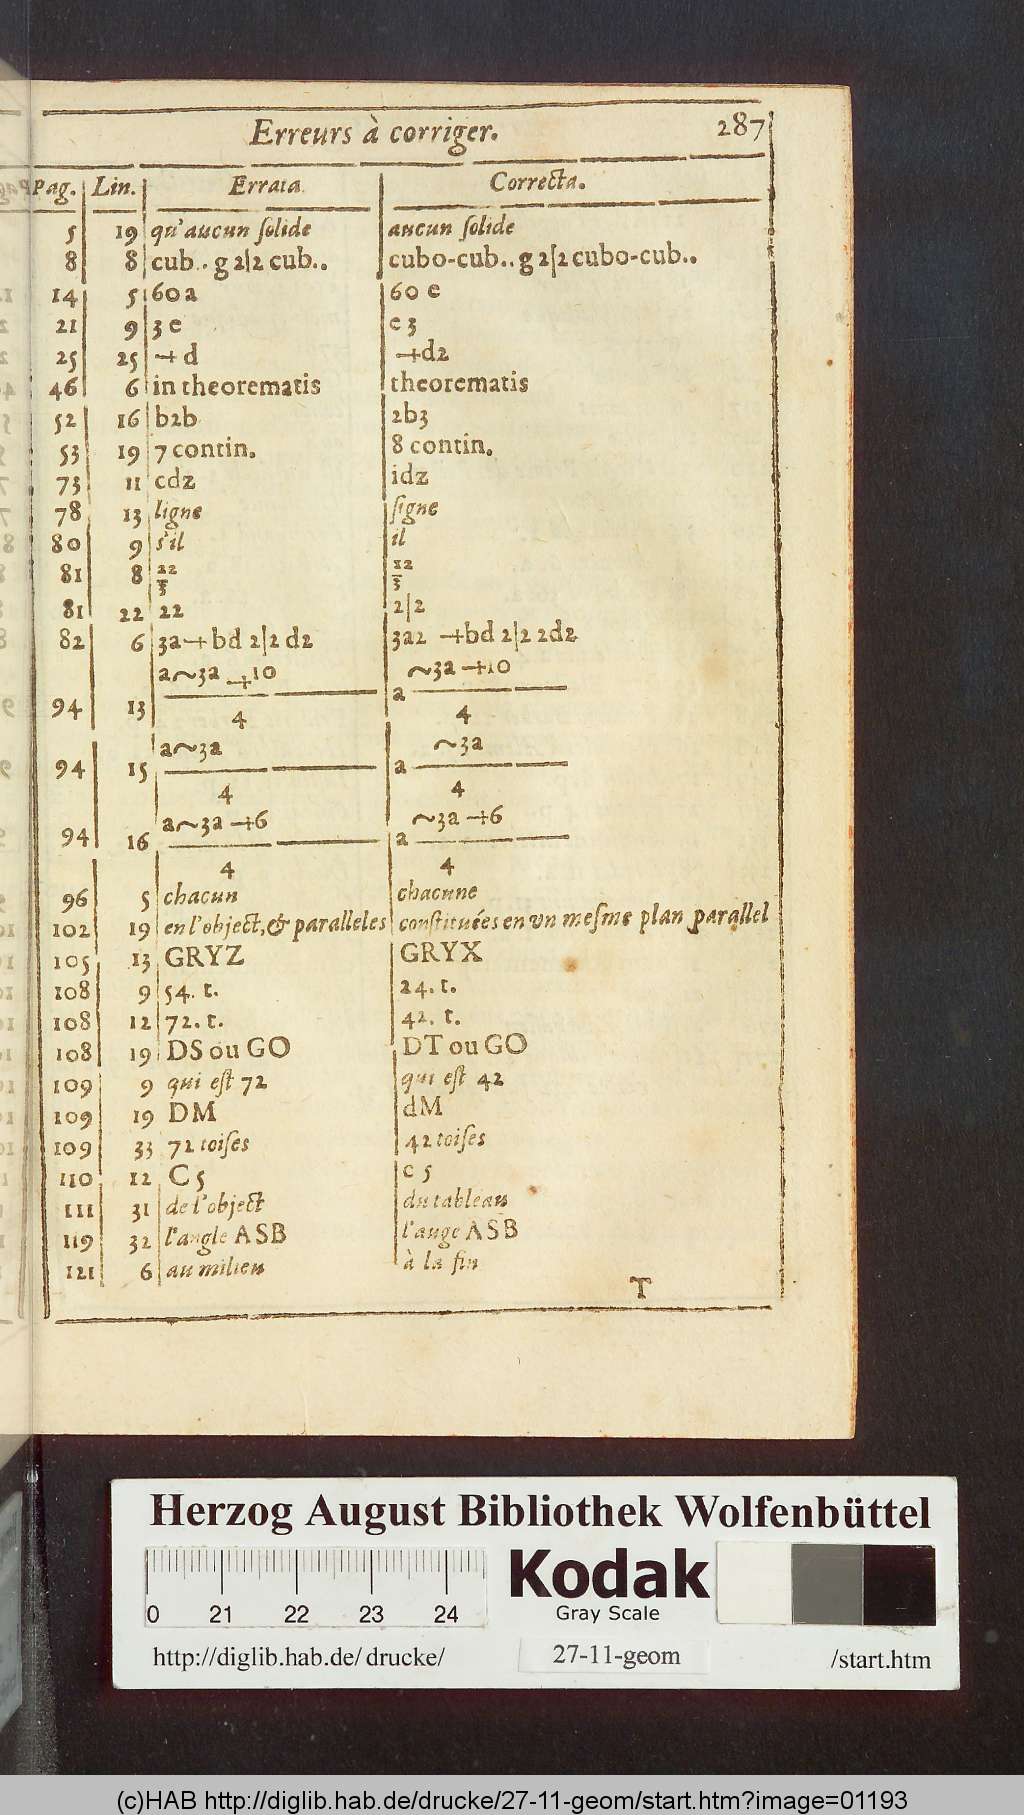 Erreurs à corriger. 287
Pag. Lin. Errata Correcta.
5 19 qu'aucun ſolide aucun ſolide
8 8 cub.. g 2|2 cub.. cubo-cub.. g 2|2 cubo-cub..
14 5 60 a 60 e
21 9 3 e e 3
25 25 + d +d2
46 6 in theorematis theorematis
52 16 b2b 2b3
53 19 7 contin. 8 contin.
73 11 cd2 id2
78 13 ligne ſigne
80 9 s'il il
81 8 22/3 12/3
81 22 22 2|2
82 6 3a+bd 2|2 d2 3a2 +bd 2|2 2d2
a~3a +10 ~3a +10
94 13 a
4 4
a~3a ~3a
94 15 a
4 4
a~3a +6 ~3a +6
94 16 a
4 4
96 5 chacun chacune
102 19 en l'object, & paralleles conſtituées en vn meſme plan parallel
105 13 GRYZ GRYX
108 9 54. t. 24. t.
108 12 72. t. 42. t.
108 19 DS ou GO DT ou GO
109 9 qui eſt 72 qui eſt 42
109 19 DM dM
109 33 72 toiſes 42 toiſes
110 12 C 5 c 5
111 31 de l'object du tableau
119 32 l'angle ASB l'auge ASB
121 6 au milieu à la fin
T
Herzog August Bibliothek Wolfenbüttel
0 21 22 23 24
Kodak
Gray Scale
http://diglib.hab.de/ drucke/ 27-11-geom /start.htm
(c)HAB http://diglib.hab.de/drucke/27-11-geom/start.htm?image=01193